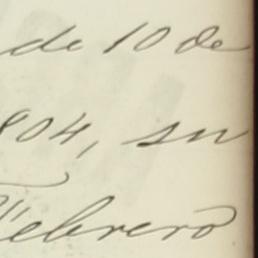 de 10 de
804, su
Febrero